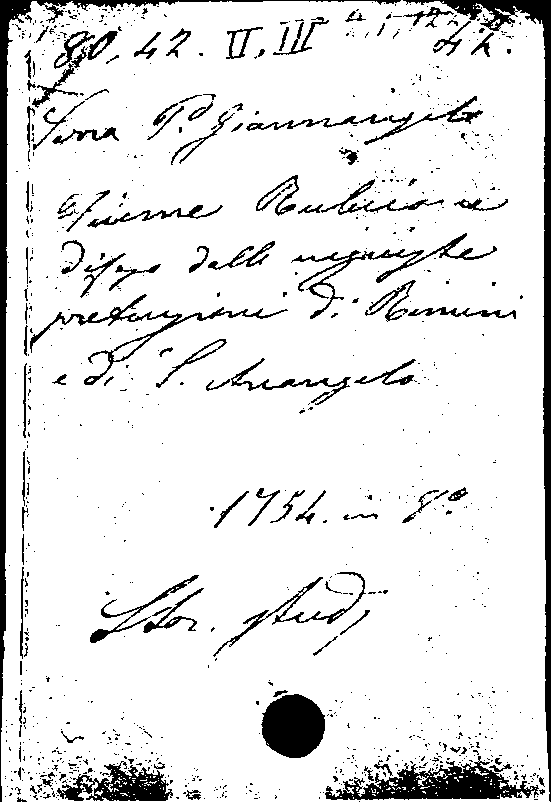 80, 42. II, III 4, 1, 12
42.
Serra P. Giannangelo
Fiume Rubicone
difeso dalle ingiuste
pretenzioni di Rimini
e di S. Arcangelo
1754. in 8º
Stor.